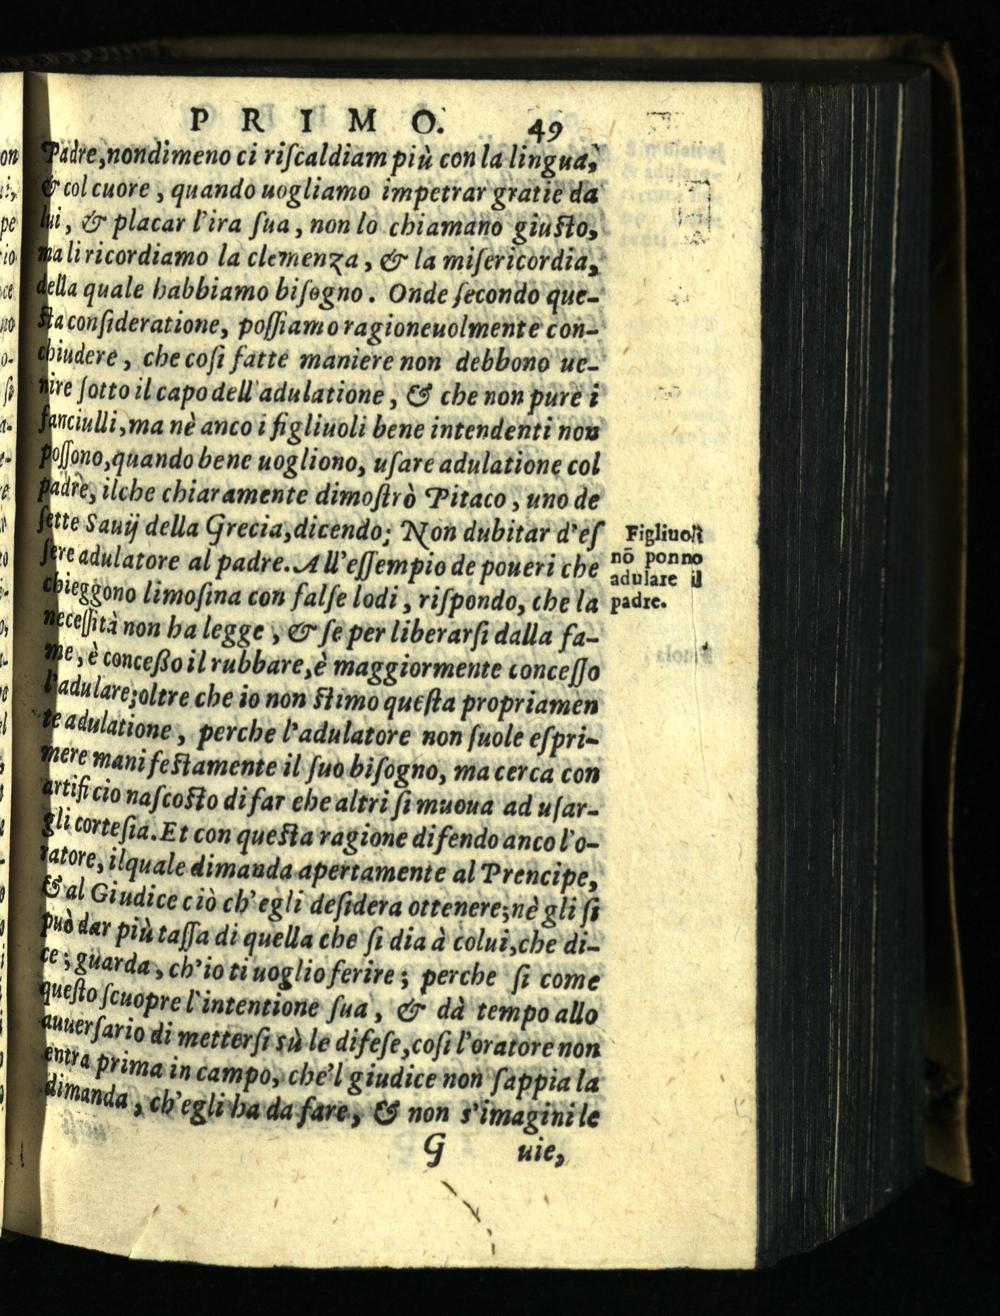 PRIMO. 49
Padre, nondimeno ci riſcaldiam più con la lingua,
& col cuore, quando uogliamo impetrar gratie da
lui, & placar l'ira ſua, non lo chiamano giuſto,
ma li ricordiamo la clemenza, & la miſericordia,
della quale habbiamo biſogno. Onde ſecondo que-
ſta conſideratione, poſſiamo ragioneuolmente con-
chiudere, che coſi fatte maniere non debbono ue-
nire ſotto il capo dell'adulatione, & che non pure i
fanciulli, ma nè anco i figliuoli bene intendenti non
poſſono, quando bene uogliono, uſare adulatione col
padre, ilche chiaramente dimoſtrò Pitaco, uno de
ſette Sauij della Grecia, dicendo; Non dubitar d'eſ
ſere adulatore al padre. All'eſſempio de poueri che
chieggono limoſina con falſe lodi, riſpondo, che la
neceſſità non ha legge, & ſe per liberarſi dalla fa-
me, è conceßo il rubbare, è maggiormente conceſſo
l'adulare; oltre che io non ſtimo queſta propriamen
te adulatione, perche l'adulatore non ſuole eſpri-
mere manifeſtamente il ſuo biſogno, ma cerca con
artificio naſcoſto di far ehe altri ſi muoua ad uſar-
gli corteſia. Et con queſta ragione difendo anco l'o-
ratore, ilquale dimanda apertamente al Prencipe,
& al Giudice ciò ch'egli deſidera ottenere; nè gli ſi
può dar più taſſa di quella che ſi dia à colui, che di-
ce; guarda, ch'io ti uoglio ferire; perche ſi come
queſto ſcuopre l'intentione ſua, & dà tempo allo
auuerſario di metterſi sù le difeſe, coſi l'oratore non
entra prima in campo, che'l giudice non ſappia la
dimanda, ch'egli ha da fare, & non s'imagini le
G uie,
Figliuoli
nõ ponno
adulare il
padre.